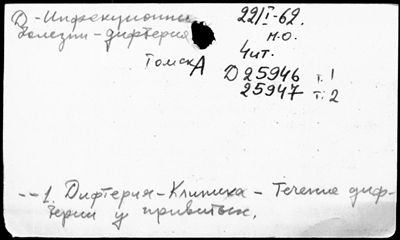 Д - Инфекционные
болезни - дифтерия
22/I-62.
н.о.
4 чит.
Томск А
Д 25946 т. 1
25947 т. 2
-- 1. Дифтерия - Клиника - Течение диф-
терии у привитых.